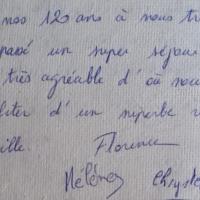 nos 120 ans à nous tr
passé un super séjour
très agréable d'où nous
fiter d'un superbe
ille.
Florence
Hélène Chryste